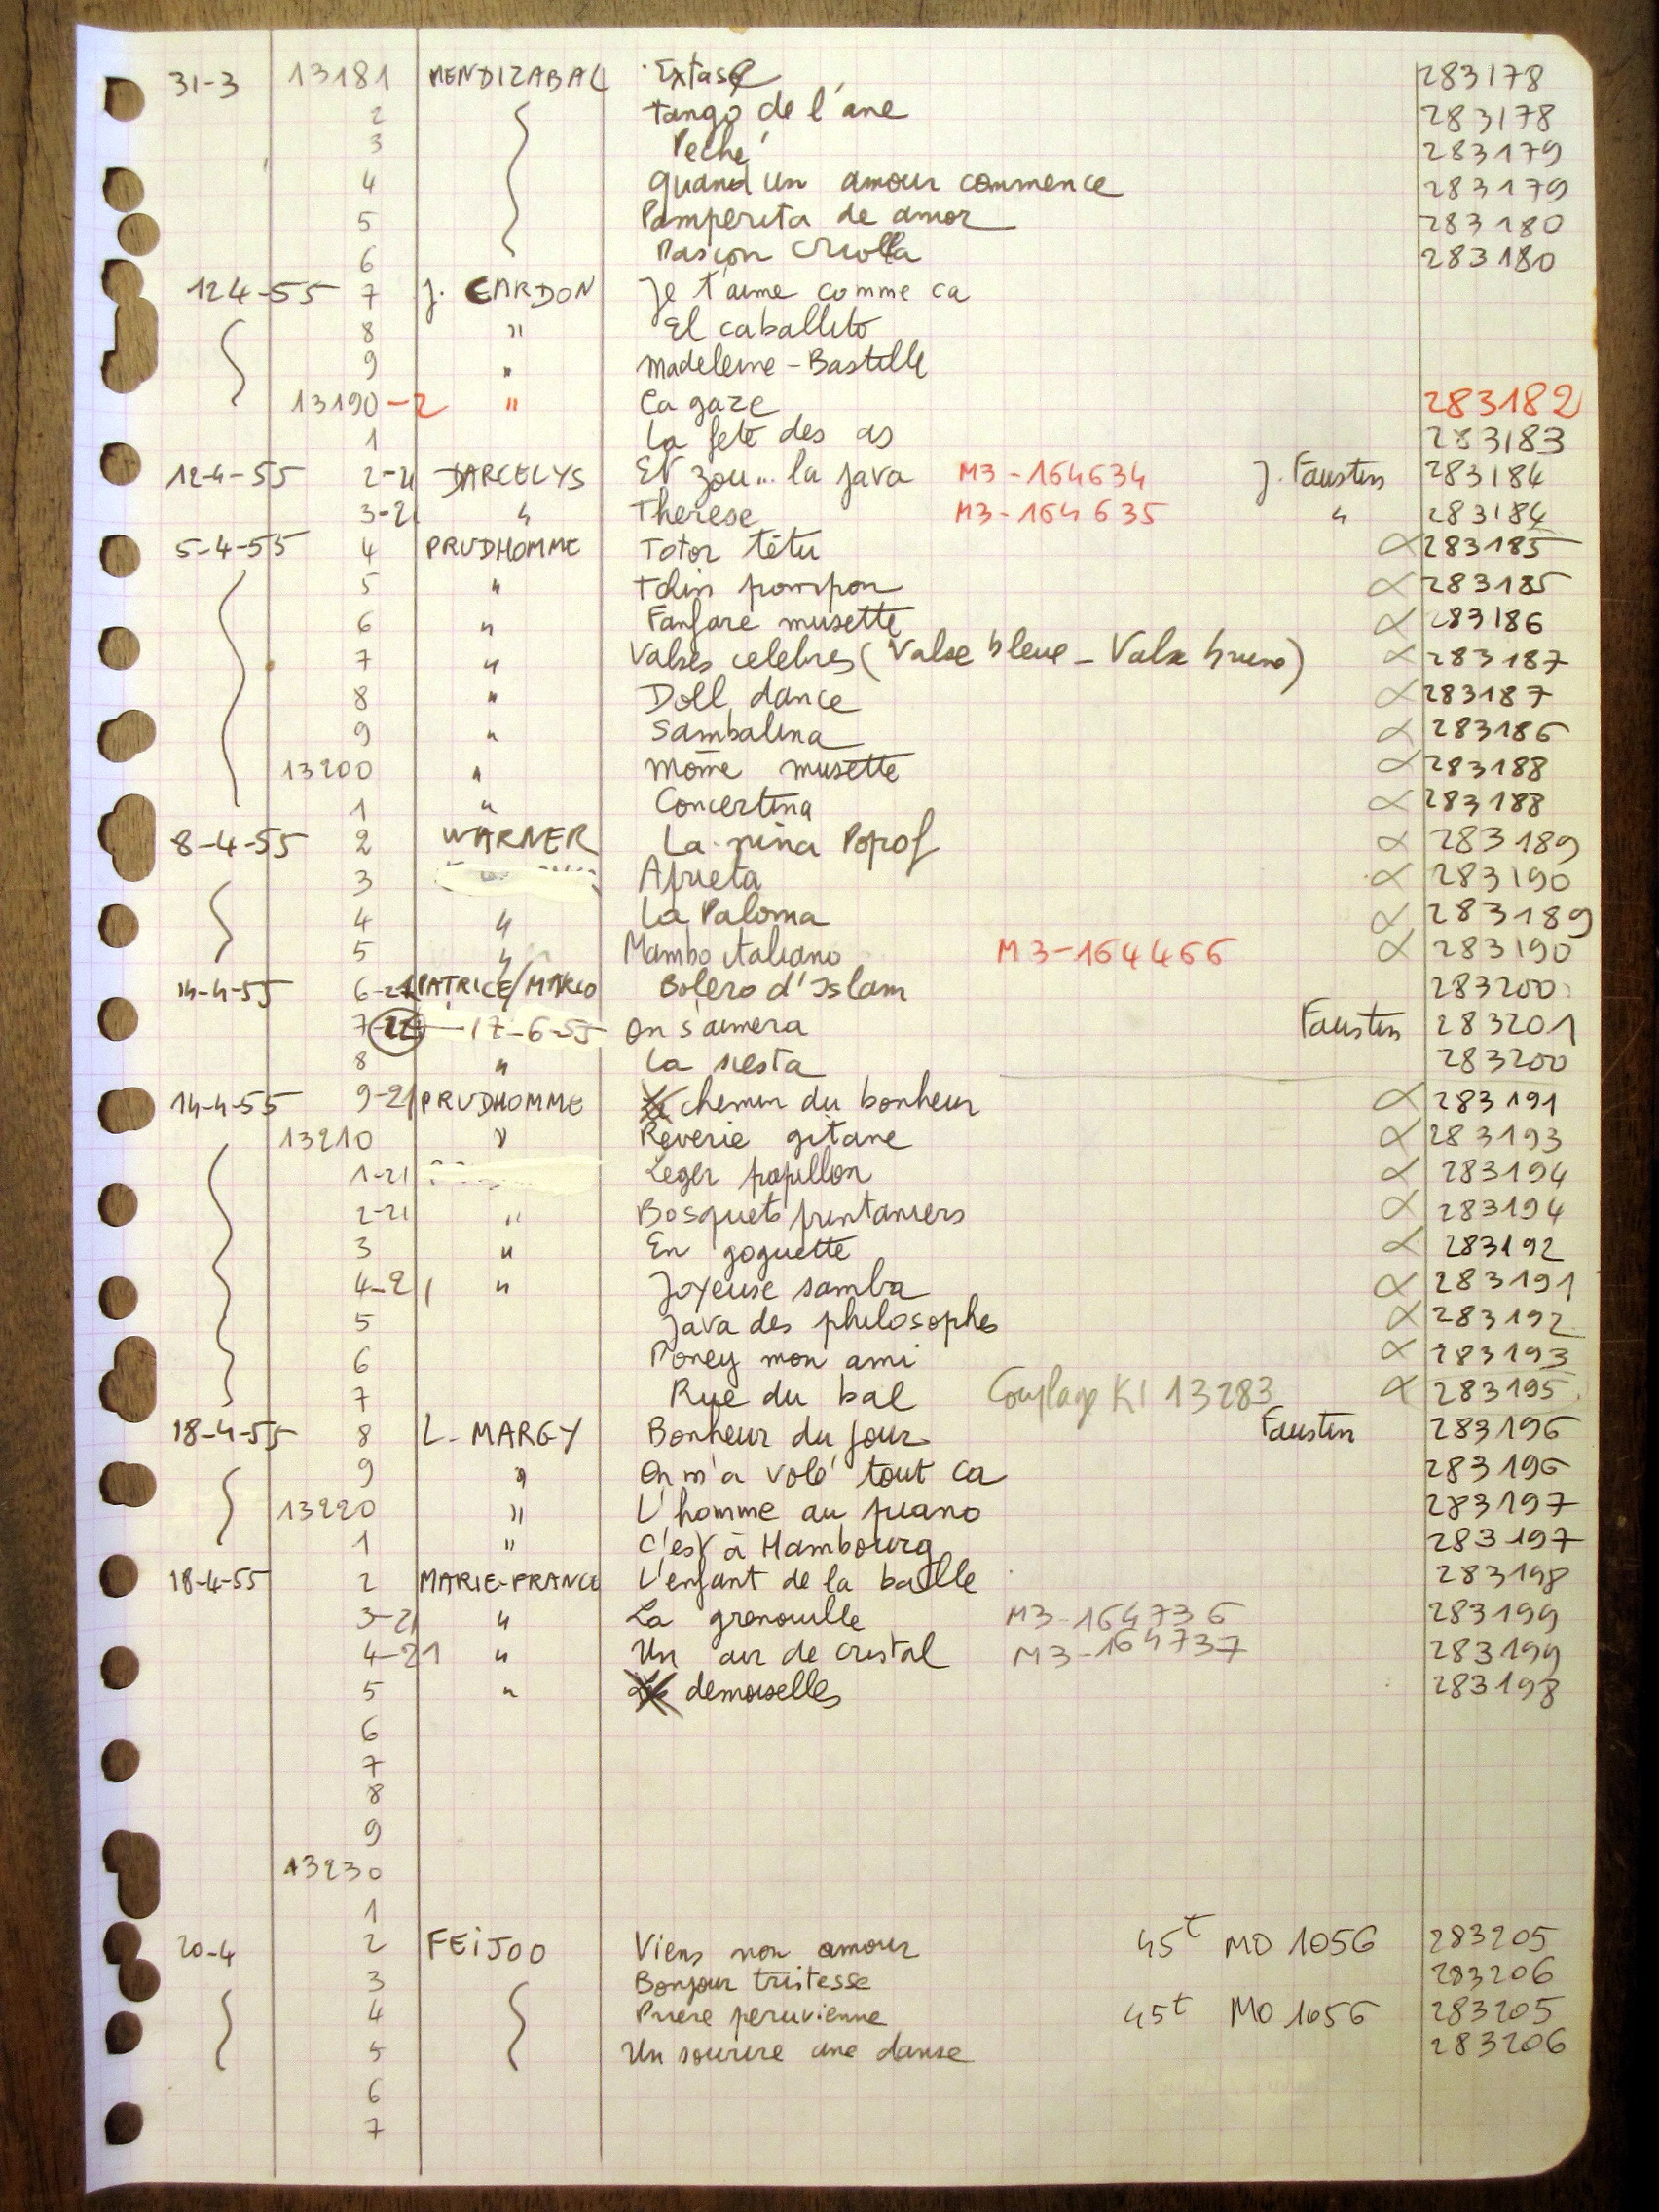 31-3 13181 MENDIZABAL Extase 283178
2 Tango de l'ane 283178
3 Péché 283179
4 Quand un amour commence 283179
5 Pamperita de amor 283180
6 Pasion Criolla 283180
12 4-55 7 J. CARDON Je t'aime comme ca
8 " El caballito
9 " Madeleine-Bastille
13190-2 " La gaze 283182
1 La fete des as 283183
12-4-55 2-21 DARCELYS Et zou... la java M3-164634 J. Faustin 283184
3-21 " Therese M3-164635 " 283184
5-4-55 4 PRUDHOMME Totor têtu α 283185
5 " pompon α 283185
6 " Fanfare musette α 283186
7 " Valses celebres (Valse bleue - Valse brune) α 283187
8 " Doll dance α 283187
9 " Sambalina α 283186
13200 " Môme musette α 283188
1 " Concertina α 283188
8-4-55 2 WARNER La nina Popof α 283189
3 Aprieta α 283190
4 " La Paloma α 283189
5 " Mambo italiano M3-164466 α 283190
14-4-55 6-21 PATRICE/MARIO Boléro d'Islam 283200
7-22 17-6-55 On s'aimera Faustin 283201
8 " La siesta 283200
14-4-55 9-21 PRUDHOMME chemin du bonheur α 283191
13210 " Reverie gitane α 283193
1-21 Leger papillon α 283194
2-21 " Bosquets printaniers α 283194
3 " En goguette α 283192
4-21 " Joyeuse samba α 283191
5 Java des philosophes α 283192
6 Poney mon ami α 283193
7 Rue du bal Couplage KI 13283 α 283195
18-4-55 8 L. MARGY Bonheur du jour Faustin 283196
9 " On m'a volé tout ca 283196
13220 " L'homme au piano 283197
1 " C'est à Hambourg 283197
18-4-55 2 MARIE-FRANCE L'enfant de la balle 283198
3-21 " La grenouille M3-164736 283199
4-21 " Un air de cristal M3-164737 283199
5 " demoiselles 283198
6
7
8
9
13230
1
20-4 2 FEIJOO Viens mon amour 45t MO 1056 283205
3 Bonjour tristesse 283206
4 Priere peruvienne 45t MO 1056 283205
5 Un sourire une danse 283206
6
7